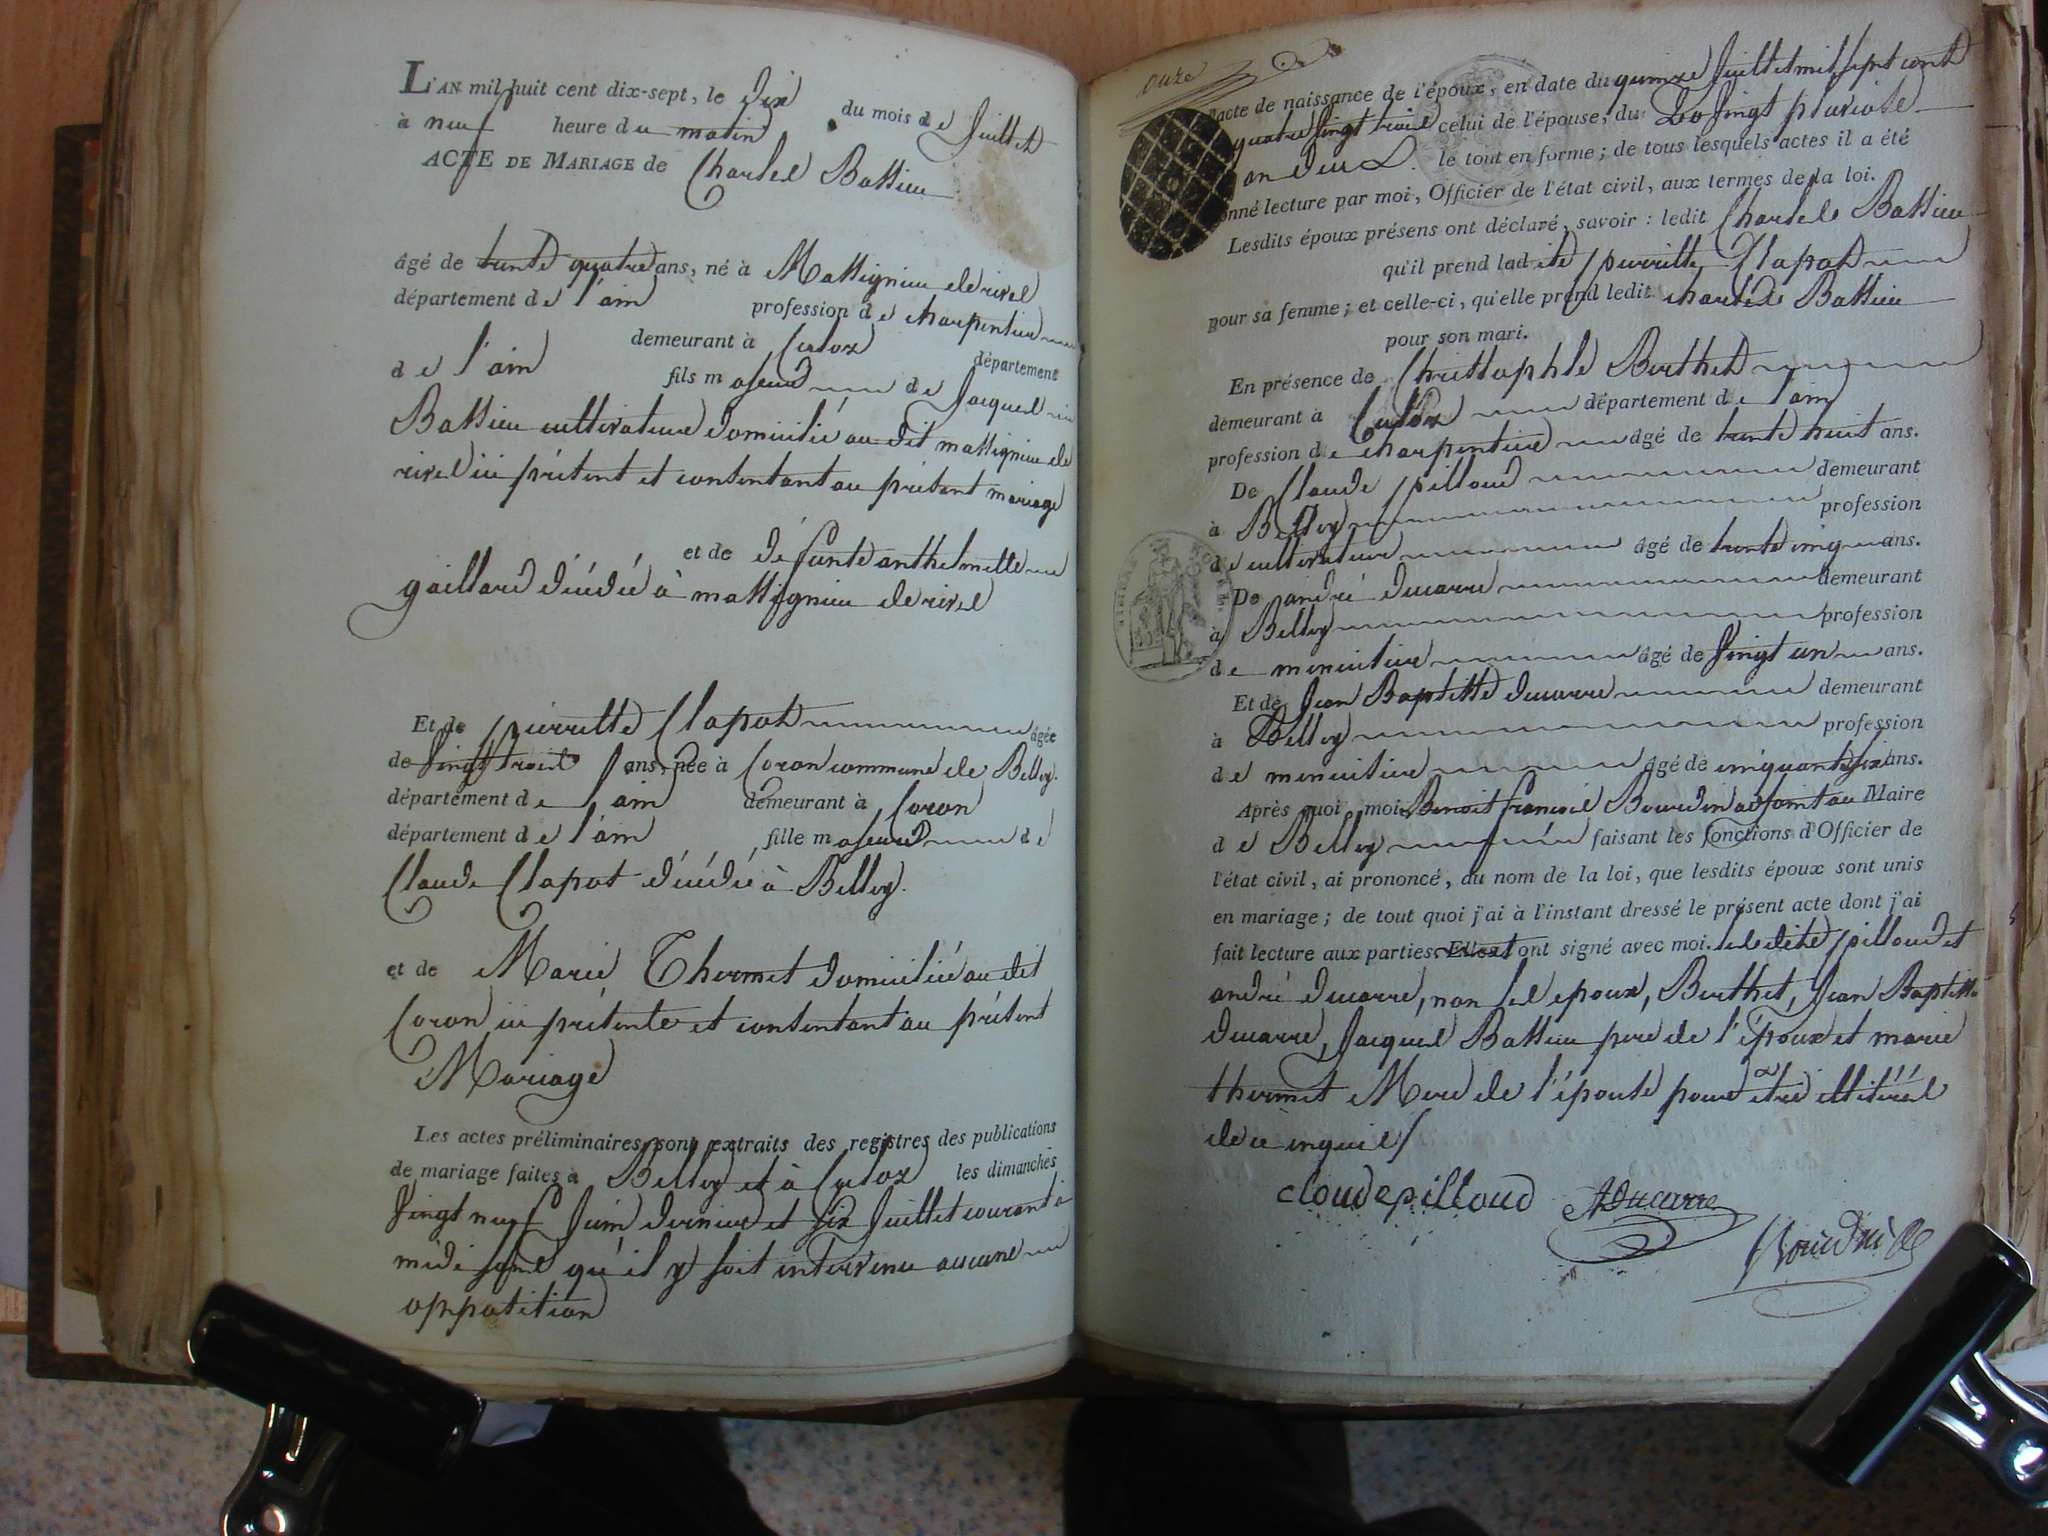 L'AN mil huit cent dix-sept, le dix du mois de Juillet
à neuf heure du matin
ACTE DE MARIAGE de Charles Bassieu
âgé de trente quatre ans, né à Massignieu de rives
département de l'ain profession de charpentier
demeurant à Culoz département
de l'ain fils majeur de Jacques
Bassieu cultivateur domicilié au dit massignieu de
rives ici présent et consentant au présent mariage
et de défunte anthelmette
gaillard décédée à massignieu de rives
Et de pierrette Clapot âgée
de vingt trois ans, née à Coron commune de Belley.
département de l'ain demeurant à Coron
département de l'ain fille majeure de
Claude Clapot décédé à Belley.
et de Marie Thermet domiciliée au dit
Coron ici présente et consentant au présent
Mariage
Les actes préliminaires sont extraits des registres des publications
de mariage faites à Belley et à Culoz les dimanches
vingt neuf Juin dernier et six Juillet courant à
midi sans qu'il y soit intervenu aucune
opposition
onze
l'acte de naissance de l'époux, en date du quinze Juillet mil sept cent
quatre vingt trois celui de l'épouse, du vingt pluviose
an deux le tout en forme; de tous lesquels actes il a été
donné lecture par moi, Officier de l'état civil, aux termes de la loi.
Lesdits époux présens ont déclaré, savoir: ledit Charles Bassieu
qu'il prend ladite pierrette Clapot
pour sa femme; et celle-ci, qu'elle prend ledit charles Bassieu
pour son mari.
En présence de Christophle Berthet
demeurant à Culoz département de l'ain
profession de charpentier âgé de trente huit ans.
De Claude pilloud demeurant
à Belley profession
de cultivateur âgé de trente cinq ans.
De andré ducarre demeurant
à Belley profession
de menuisier âgé de vingt un ans.
Et de Jean Baptiste ducarre demeurant
à Belley profession
de menuisier âgé de cinquante six ans.
Après quoi, moi Benoit françois Bourdin adjoint au Maire
de Belley faisant les fonctions d'Officier de
l'état civil, ai prononcé, au nom de la loi, que lesdits époux sont unis
en mariage; de tout quoi j'ai à l'instant dressé le présent acte dont j'ai
fait lecture aux parties. Elles ont signé avec moi. lesdits pilloud et
andré ducarre, non les epoux, Berthet, Jean Baptiste
ducarre, Jacques Bassieu pere de l'époux et marie
thermet Mere de l'épouse pour être illitérés
de ce enquis/
cloude pilloud ADucarre
Bourdin